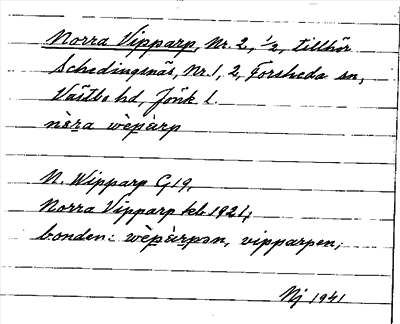 Norra Vipparp, Nr. 2, 1/2, tillhör
Schedingsnäs, Nr. 1, 2, Forsheda sn,
Västbo hd, Jönk l.
nòra wèpàrp
N. Wipparp G19,
Norra Vipparp kb 1921;
bonden: wèpàrpən, vipparpen;
Nj 1941